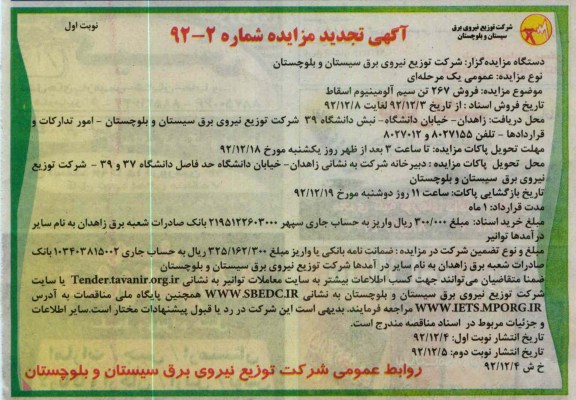 شرکت توزیع نیروی برق
سیستان و بلوچستان
نوبت اول
آگهی تجدید مزایده شماره ۲-۹۲
دستگاه مزایده‌گزار: شرکت توزیع نیروی برق سیستان و بلوچستان
نوع مزایده: عمومی یک مرحله‌ای
موضوع مزایده: فروش ۲۶۷ تن سیم آلومینیوم اسقاط
تاریخ فروش اسناد : از تاریخ ۹۲/۱۲/۳ لغایت ۹۲/۱۲/۸
محل دریافت: زاهدان- خیابان دانشگاه- نبش دانشگاه ۳۹ شرکت توزیع نیروی برق سیستان و بلوچستان - امور تدارکات و
قراردادها - تلفن ۸۰۲۷۱۵۵ و ۸۰۲۷۰۱۲
مهلت تحویل پاکات مزایده: تا ساعت ۳ بعد از ظهر روز یکشنبه مورخ ۹۲/۱۲/۱۸
محل تحویل پاکات مزایده : دبیرخانه شرکت به نشانی زاهدان- خیابان دانشگاه حد فاصل دانشگاه ۳۷ و ۳۹ - شرکت توزیع
نیروی برق سیستان و بلوچستان
تاریخ بازگشایی پاکات: ساعت ۱۱ روز دوشنبه مورخ ۹۲/۱۲/۱۹
مدت قرارداد: ۱ ماه
مبلغ خرید اسناد: مبلغ ۳۰۰/۰۰۰ ریال واریز به حساب جاری سپهر ۲۱۹۵۱۲۲۶۰۳۰۰۰ بانک صادرات شعبه برق زاهدان به نام سایر
درآمدها توانیر
مبلغ و نوع تضمین شرکت در مزایده : ضمانت نامه بانکی یا واریز مبلغ ۳۲۵/۱۶۲/۳۰۰ ریال به حساب جاری ۱۰۳۴۰۳۸۱۵۰۰۲ بانک
صادرات شعبه برق زاهدان به نام سایر در آمدها شرکت توزیع نیروی برق سیستان و بلوچستان
ضمنا متقاضیان می‌توانند جهت کسب اطلاعات بیشتر به سایت معاملات توانیر به نشانی Tender.tavanir.org.ir یا سایت
شرکت توزیع نیروی برق سیستان و بلوچستان به نشانی WWW.SBEDC.IR همچنین پایگاه ملی مناقصات به آدرس
WWW.IETS.MPORG.IR مراجعه فرمایند. بدیهی است این شرکت در رد یا قبول پیشنهادات مختار است.سایر اطلاعات
و جزئیات مربوط در اسناد مناقصه مندرج است.
تاریخ انتشار نوبت اول: ۹۲/۱۲/۴
تاریخ انتشار نوبت دوم: ۹۲/۱۲/۵
خ ش ۹۲/۱۲/۴
روابط عمومی شرکت توزیع نیروی برق سیستان و بلوچستان